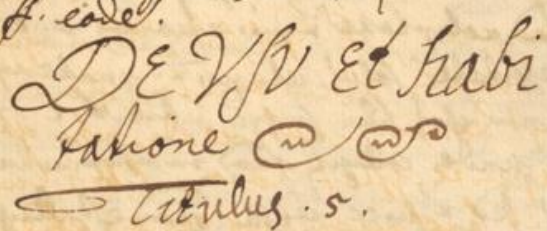 ff. eode.
DE VsV Et habi
tatione
Titulus . 5 .